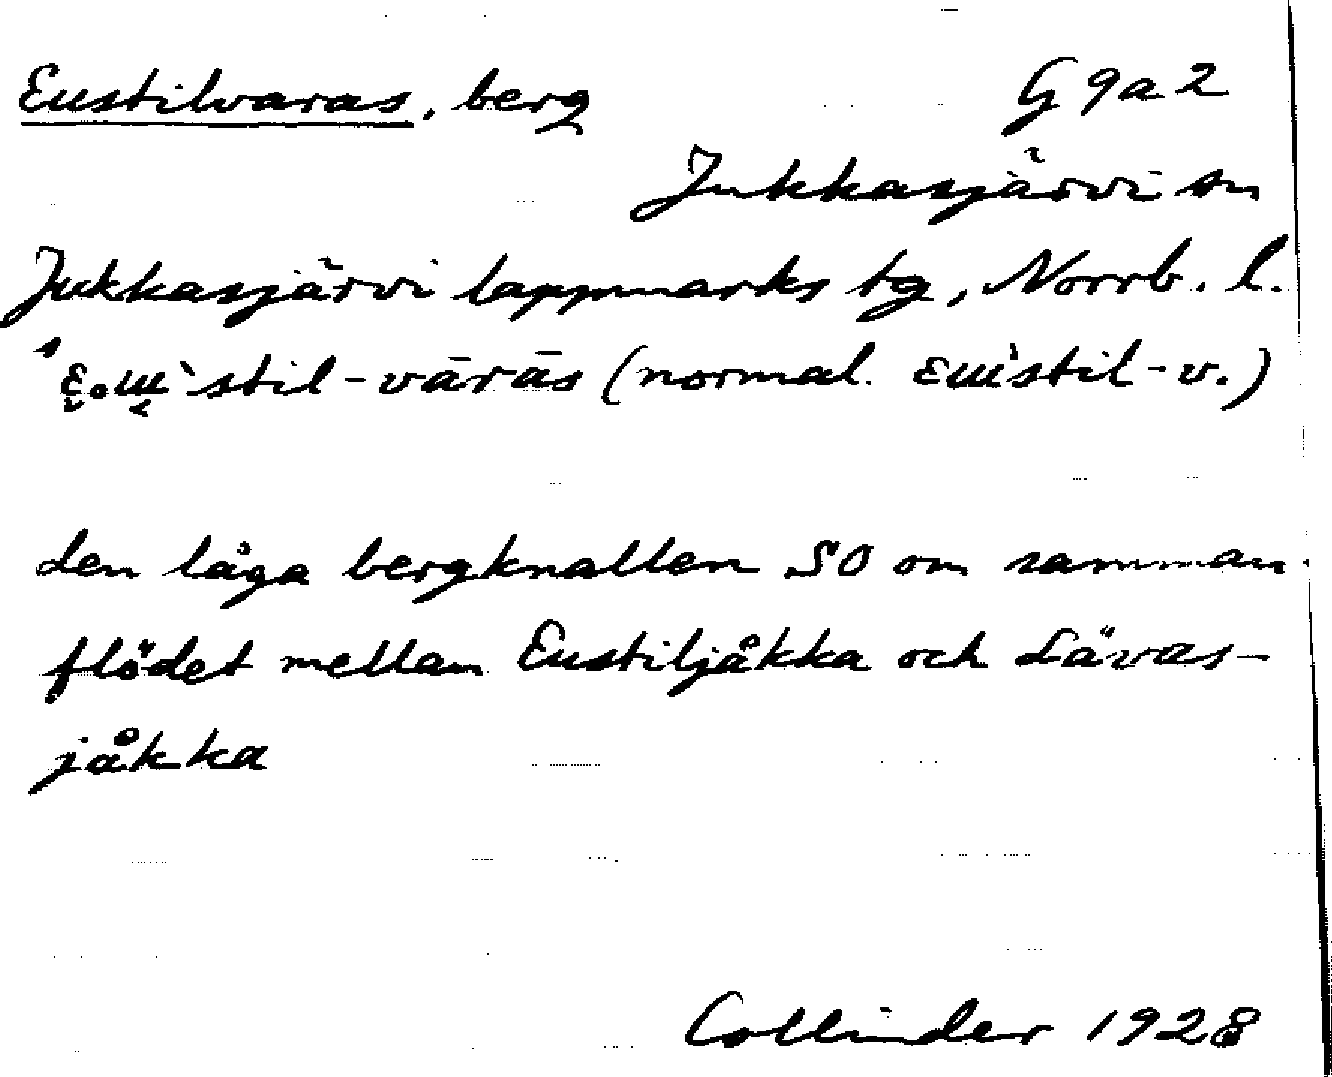 Eustilvaras, berg G 9a2
Jukkasjärvi sn
Jukkasjärvi lappmarks tg, Norrb. l.
stil-vārās (normal. ɛɯ̀stil-v.)
den låga bergknallen SO om samman-
flödet mellan Eustiljåkka och Lävas-
jåkka
Collinder 1928